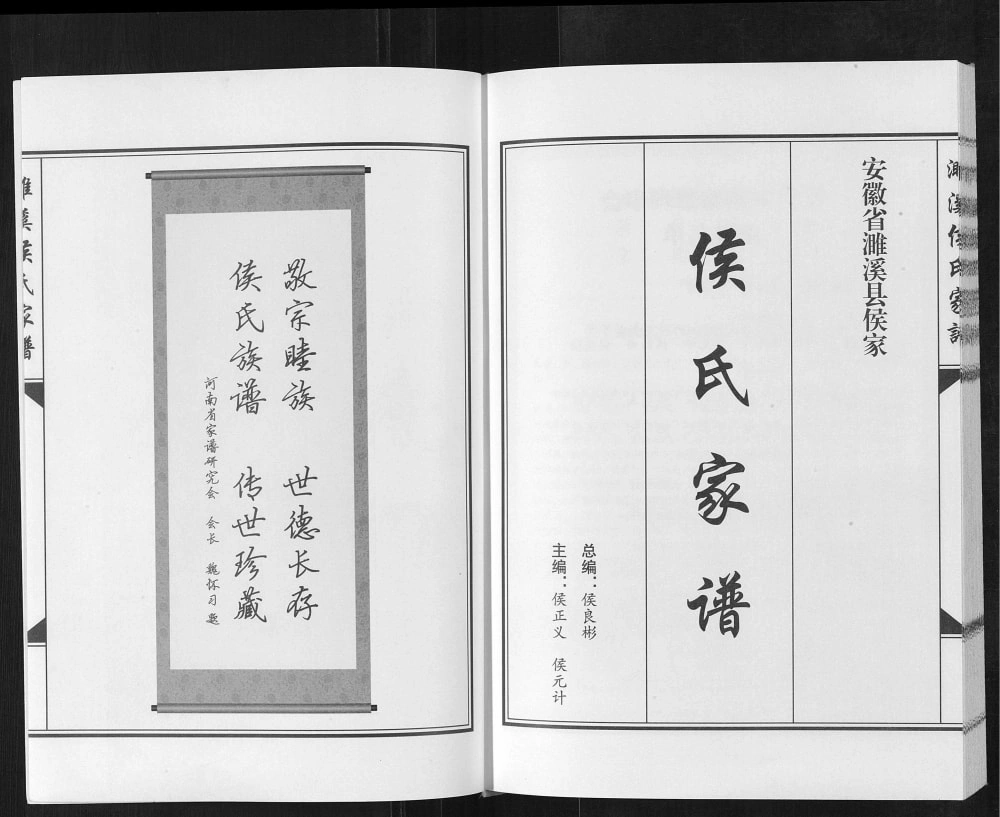 濉溪侯氏家谱
安徽省濉溪县侯家
侯氏家谱
总编：侯良彬
主编：侯正义 侯元计
敬宗睦族 世德长存
侯氏族谱 传世珍藏
河南省家谱研究会 会长 魏怀习 题
濉溪侯氏家谱